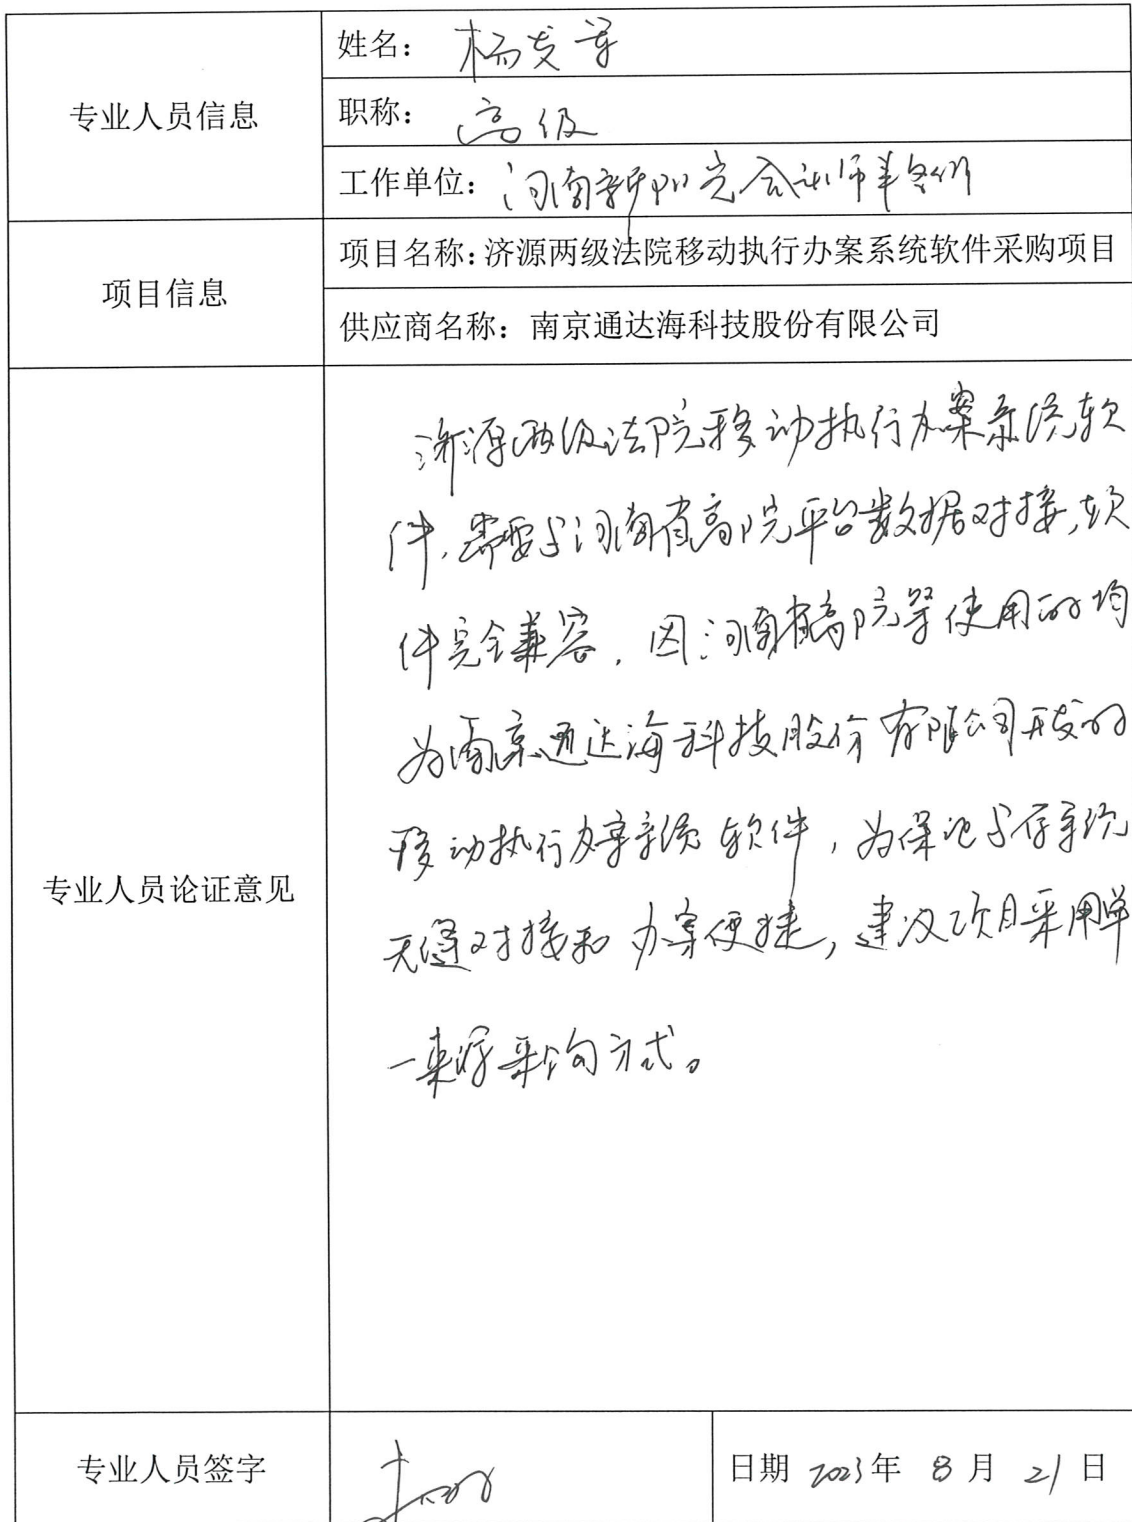 专业人员信息
姓名：杨
职称：高级
工作单位：河南新阳光会计师事务所
项目信息
项目名称：济源两级法院移动执行办案系统软件采购项目
供应商名称：南京通达海科技股份有限公司
专业人员论证意见
济源两级法院移动执行办案系统软
件，需要与河南省高院平台数据对接，软
件完全兼容，因河南省高院等使用的均
为南京通达海科技股份有限公司开发的
移动执行办案系统软件，为保证与原系统
无缝对接和办案便捷，建议项目采用单
一来源采购方式。
专业人员签字
日期 2023年 8月 21日